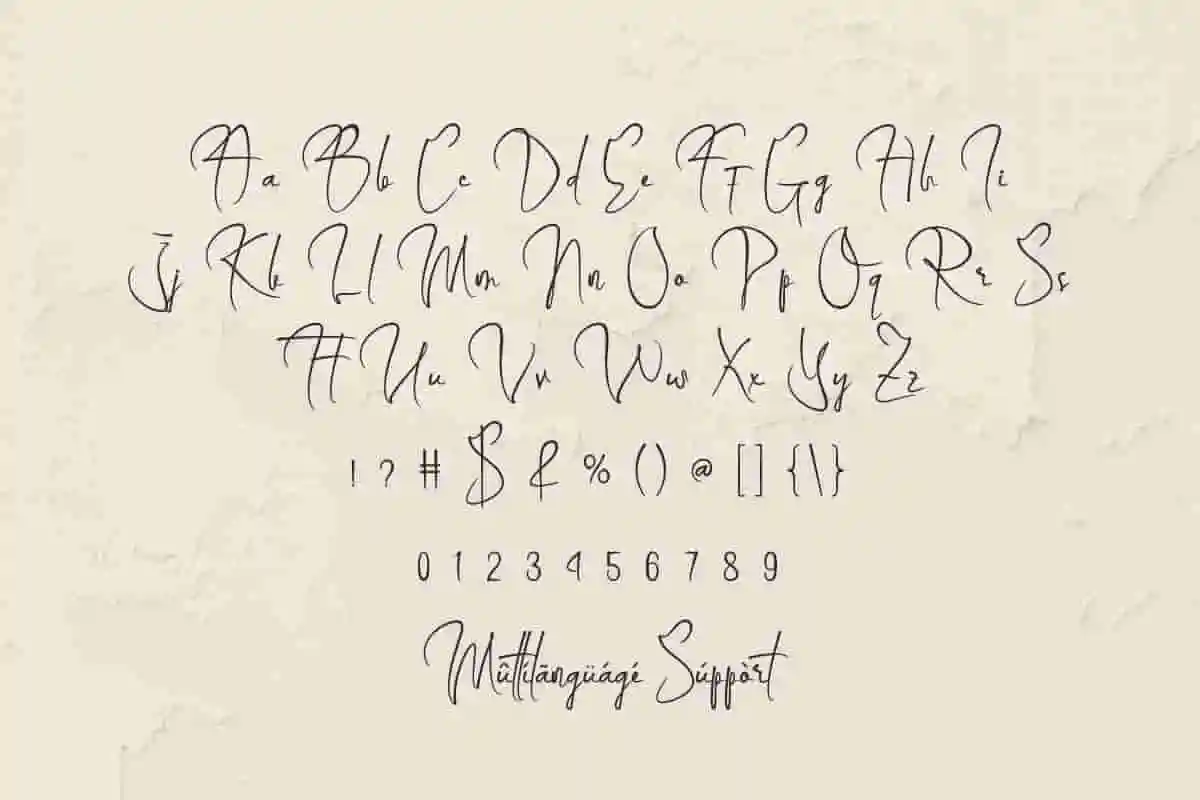 Aa Bb Cc Dd Ee Ff Gg Hh Ii
Jj Kk Ll Mm Nn Oo Pp Qq Rr Ss
Tt Uu Vv Ww Xx Yy Zz
! ? # $ & % () @ [] {\}
0 1 2 3 4 5 6 7 8 9
Mûltìlāngüágé Súppòrt